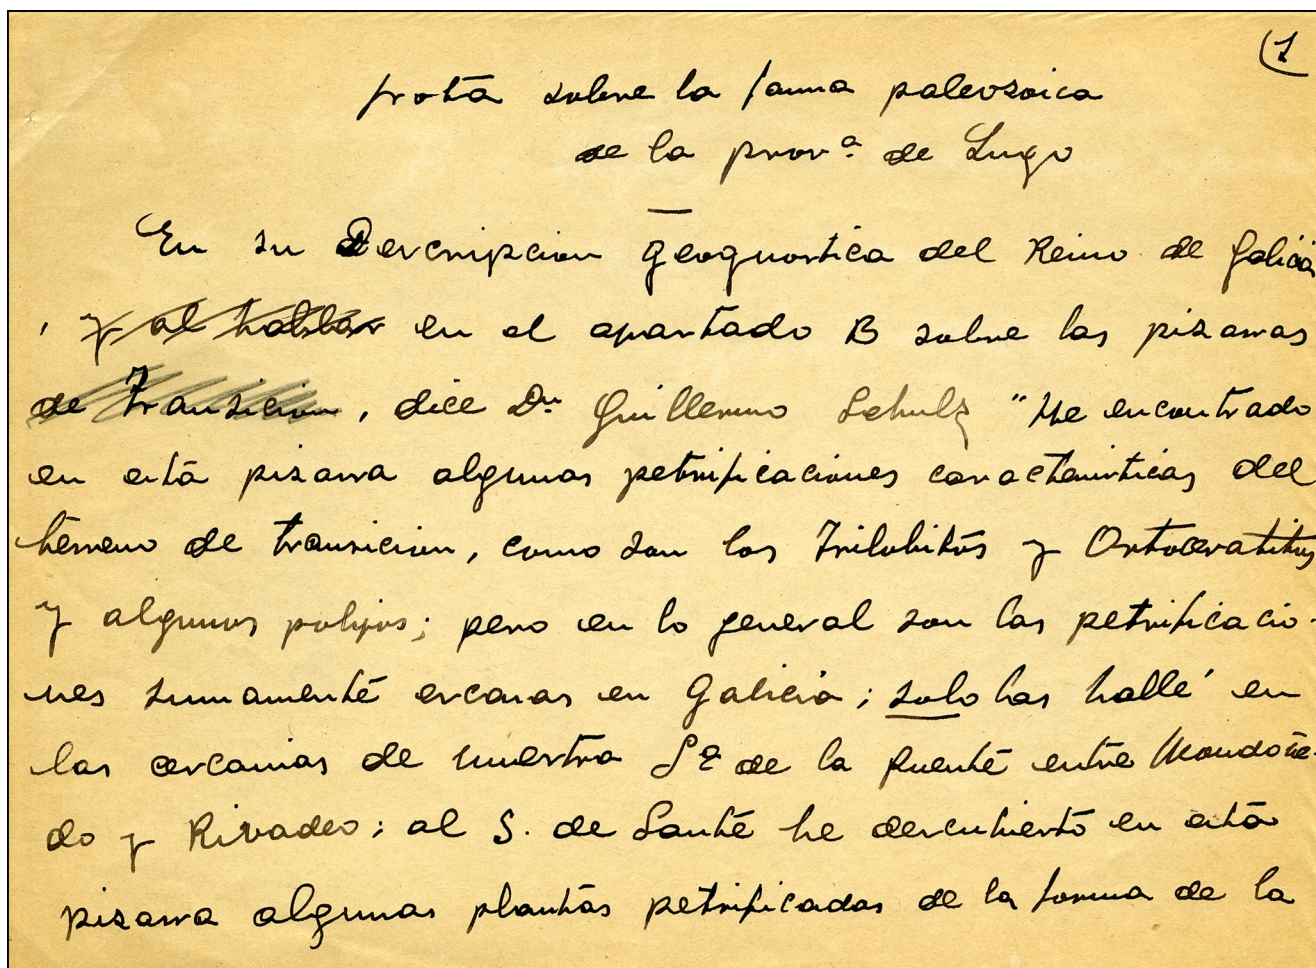 (1
Nota sobre la fauna paleozoica
de la provª. de Lugo
En su Descripcion geognostica del Reino de Galicia
, y al hablar en el apartado B sobre las pizarras
de Transicion, dice Dn Guillermo Schulz "He encontrado
en esta pizarra algunas petrificaciones caracteristicas del
terreno de transicion, como son los Trilobitos y Ortoceratitos
y algunos polipos; pero en lo general son las petrificacio-
nes sumamente escasas en Galicia; solo las hallé en
las cercanias de nuestra Sª de la Puente entre Mondoñe-
do y Rivadeo; al S. de Santé he descubierto en esta
pizarra algunas plantas petrificadas de la forma de la